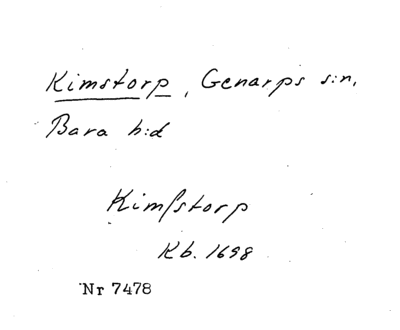 Kimstorp, Genarps s:n,
Bara h:d
Kimſstorp
Kb. 1698
Nr 7478